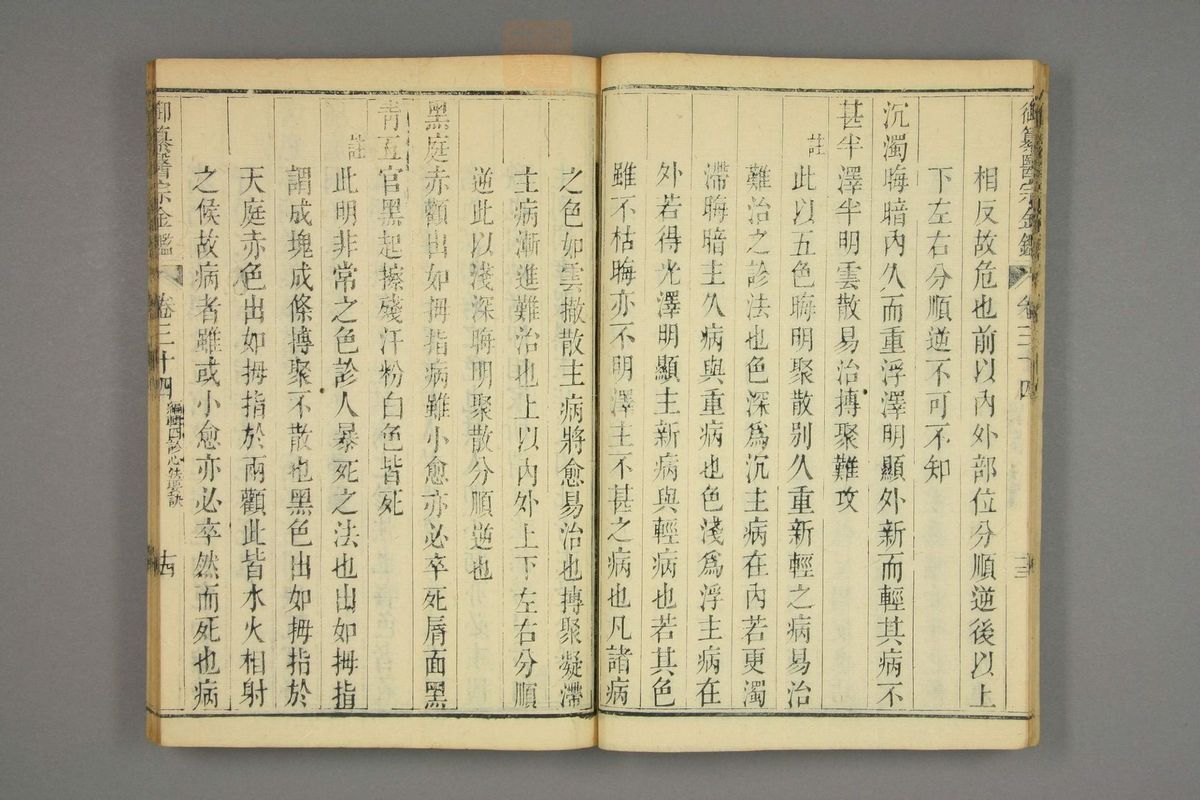 御纂醫宗金鑑 卷三十四 十三
相反故危也前以內外部位分順逆後以上
下左右分順逆不可不知
沉濁晦暗內久而重浮澤明顯外新而輕其病不
甚半澤半明雲散易治摶聚難攻
註
此以五色晦明聚散別久重新輕之病易治
難治之診法也色深爲沉主病在內若更濁
滯晦暗主久病與重病也色淺爲浮主病在
外若得光澤明顯主新病與輕病也若其色
雖不枯晦亦不明澤主不甚之病也凡諸病
之色如雲撤散主病將愈易治也摶聚凝滯
主病漸進難治也上以內外上下左右分順
逆此以淺深晦明聚散分順逆也
黑庭赤顴出如拇指病雖小愈亦必卒死脣面黑
青五官黑起擦殘汗粉白色皆死
註
此明非常之色診人暴死之法也出如拇指
謂成塊成條摶聚不散也黑色出如拇指於
天庭赤色出如拇指於兩顴此皆水火相射
之候故病者雖或小愈亦必卒然而死也病
御纂醫宗金鑑 卷三十四 編輯四診心法要訣 十四